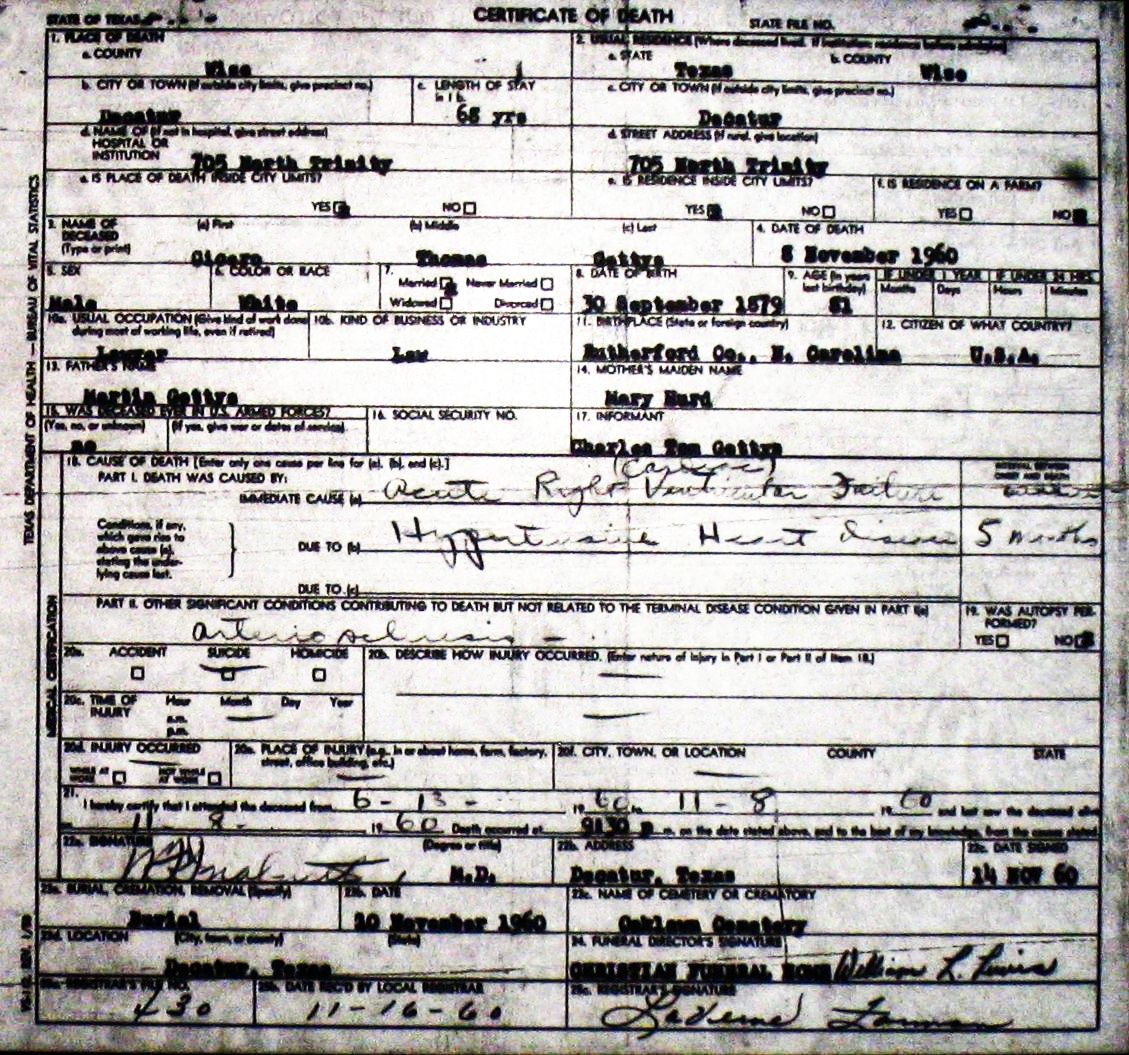 STATE OF TEXAS
CERTIFICATE OF DEATH
STATE FILE NO.
1. PLACE OF DEATH
a. COUNTY
Wise
2. USUAL RESIDENCE (Where deceased lived. If institution: residence before admission)
a. STATE
Texas
b. COUNTY
Wise
b. CITY OR TOWN (If outside city limits, give precinct no.)
Decatur
c. LENGTH OF STAY
in 1 b.
68 yrs
c. CITY OR TOWN (If outside city limits, give precinct no.)
Decatur
d. NAME OF (If not in hospital, give street address)
HOSPITAL OR
INSTITUTION
705 North Trinity
d. STREET ADDRESS (If rural, give location)
705 North Trinity
e. IS PLACE OF DEATH INSIDE CITY LIMITS?
YES NO
e. IS RESIDENCE INSIDE CITY LIMITS?
YES NO
f. IS RESIDENCE ON A FARM?
YES NO
3. NAME OF
DECEASED
(Type or print)
(a) First
Cicero
(b) Middle
Thomas
(c) Last
Gettys
4. DATE OF DEATH
8 November 1960
5. SEX
Male
6. COLOR OR RACE
White
7.
Married Never Married
Widowed Divorced
8. DATE OF BIRTH
30 September 1879
9. AGE (In years
last birthday)
81
IF UNDER 1 YEAR
Months Days
IF UNDER 24 HRS.
Hours Minutes
10a. USUAL OCCUPATION (Give kind of work done
during most of working life, even if retired)
Lawyer
10b. KIND OF BUSINESS OR INDUSTRY
Law
11. BIRTHPLACE (State or foreign country)
Rutherford Co., N. Carolina
12. CITIZEN OF WHAT COUNTRY?
U.S.A.
13. FATHER'S NAME
Martin Gettys
14. MOTHER'S MAIDEN NAME
Mary Hurd
15. WAS DECEASED EVER IN U.S. ARMED FORCES?
(Yes, no, or unknown) (If yes, give war or dates of service)
no
16. SOCIAL SECURITY NO.
17. INFORMANT
Charles Tom Gettys
18. CAUSE OF DEATH [Enter only one cause per line for (a), (b), and (c).]
PART I. DEATH WAS CAUSED BY:
INTERVAL BETWEEN
ONSET AND DEATH
IMMEDIATE CAUSE (a)
(Cardiac)
Acute Right Ventricular Failure
Conditions, if any,
which gave rise to
above cause (a),
stating the under-
lying cause last.
DUE TO (b)
Hypertensive Heart Disease
5 months
DUE TO (c)
PART II. OTHER SIGNIFICANT CONDITIONS CONTRIBUTING TO DEATH BUT NOT RELATED TO THE TERMINAL DISEASE CONDITION GIVEN IN PART I(a)
arteriosclerosis -
19. WAS AUTOPSY PER-
FORMED?
YES NO
20a. ACCIDENT SUICIDE HOMICIDE
20b. DESCRIBE HOW INJURY OCCURRED. (Enter nature of injury in Part I or Part II of Item 18.)
20c. TIME OF
INJURY
Hour Month Day Year
a.m.
p.m.
20d. INJURY OCCURRED
WHILE AT
WORK
NOT WHILE
AT WORK
20e. PLACE OF INJURY (e.g., in or about home, farm, factory,
street, office building, etc.)
20f. CITY, TOWN, OR LOCATION COUNTY STATE
21.
I hereby certify that I attended the deceased from 6 - 13 - 19 60 to 11 - 8 19 60 and last saw the deceased alive
on 11 8 - 19 60 Death occurred at 9:30 p m. on the date stated above, and to the best of my knowledge, from the causes stated.
22a. SIGNATURE (Degree or title)
M.D.
22b. ADDRESS
Decatur, Texas
22c. DATE SIGNED
14 NOV 60
23a. BURIAL, CREMATION, REMOVAL (Specify)
Burial
23b. DATE
10 November 1960
23c. NAME OF CEMETERY OR CREMATORY
Oaklawn Cemetery
23d. LOCATION (City, town, or county) (State)
Decatur, Texas
24. FUNERAL DIRECTOR'S SIGNATURE
CHRISTIAN FUNERAL HOME William L.
25a. REGISTRAR'S FILE NO.
430
25b. DATE REC'D BY LOCAL REGISTRAR
11-16-60
25c. REGISTRAR'S SIGNATURE
LaVerne
TEXAS DEPARTMENT OF HEALTH — BUREAU OF VITAL STATISTICS
MEDICAL CERTIFICATION